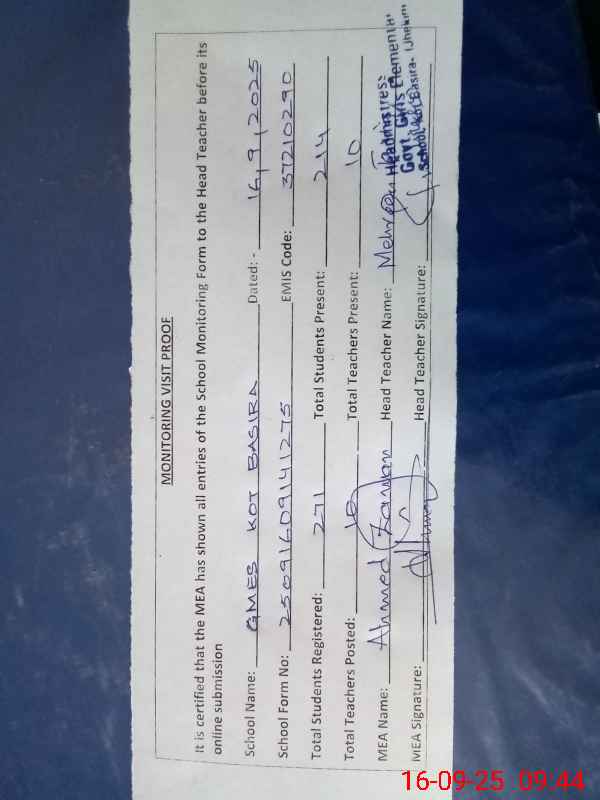 MONITORING VISIT PROOF
It is certified that the MEA has shown all entries of the School Monitoring Form to the Head Teacher before its
online submission
School Name: GMES KOT BASIRA Dated: - 16,9,2025
School Form No: 25091609141275 EMIS Code: 37210290
Total Students Registered: 271 Total Students Present: 214
Total Teachers Posted: 10 Total Teachers Present: 10
MEA Name: Ahmed Head Teacher Name: Mehreen
MEA Signature: Head Teacher Signature:
Headmistress
Govt. Girls Elementar
School Kot Basira- (Jhelum
16-09-25 09:44